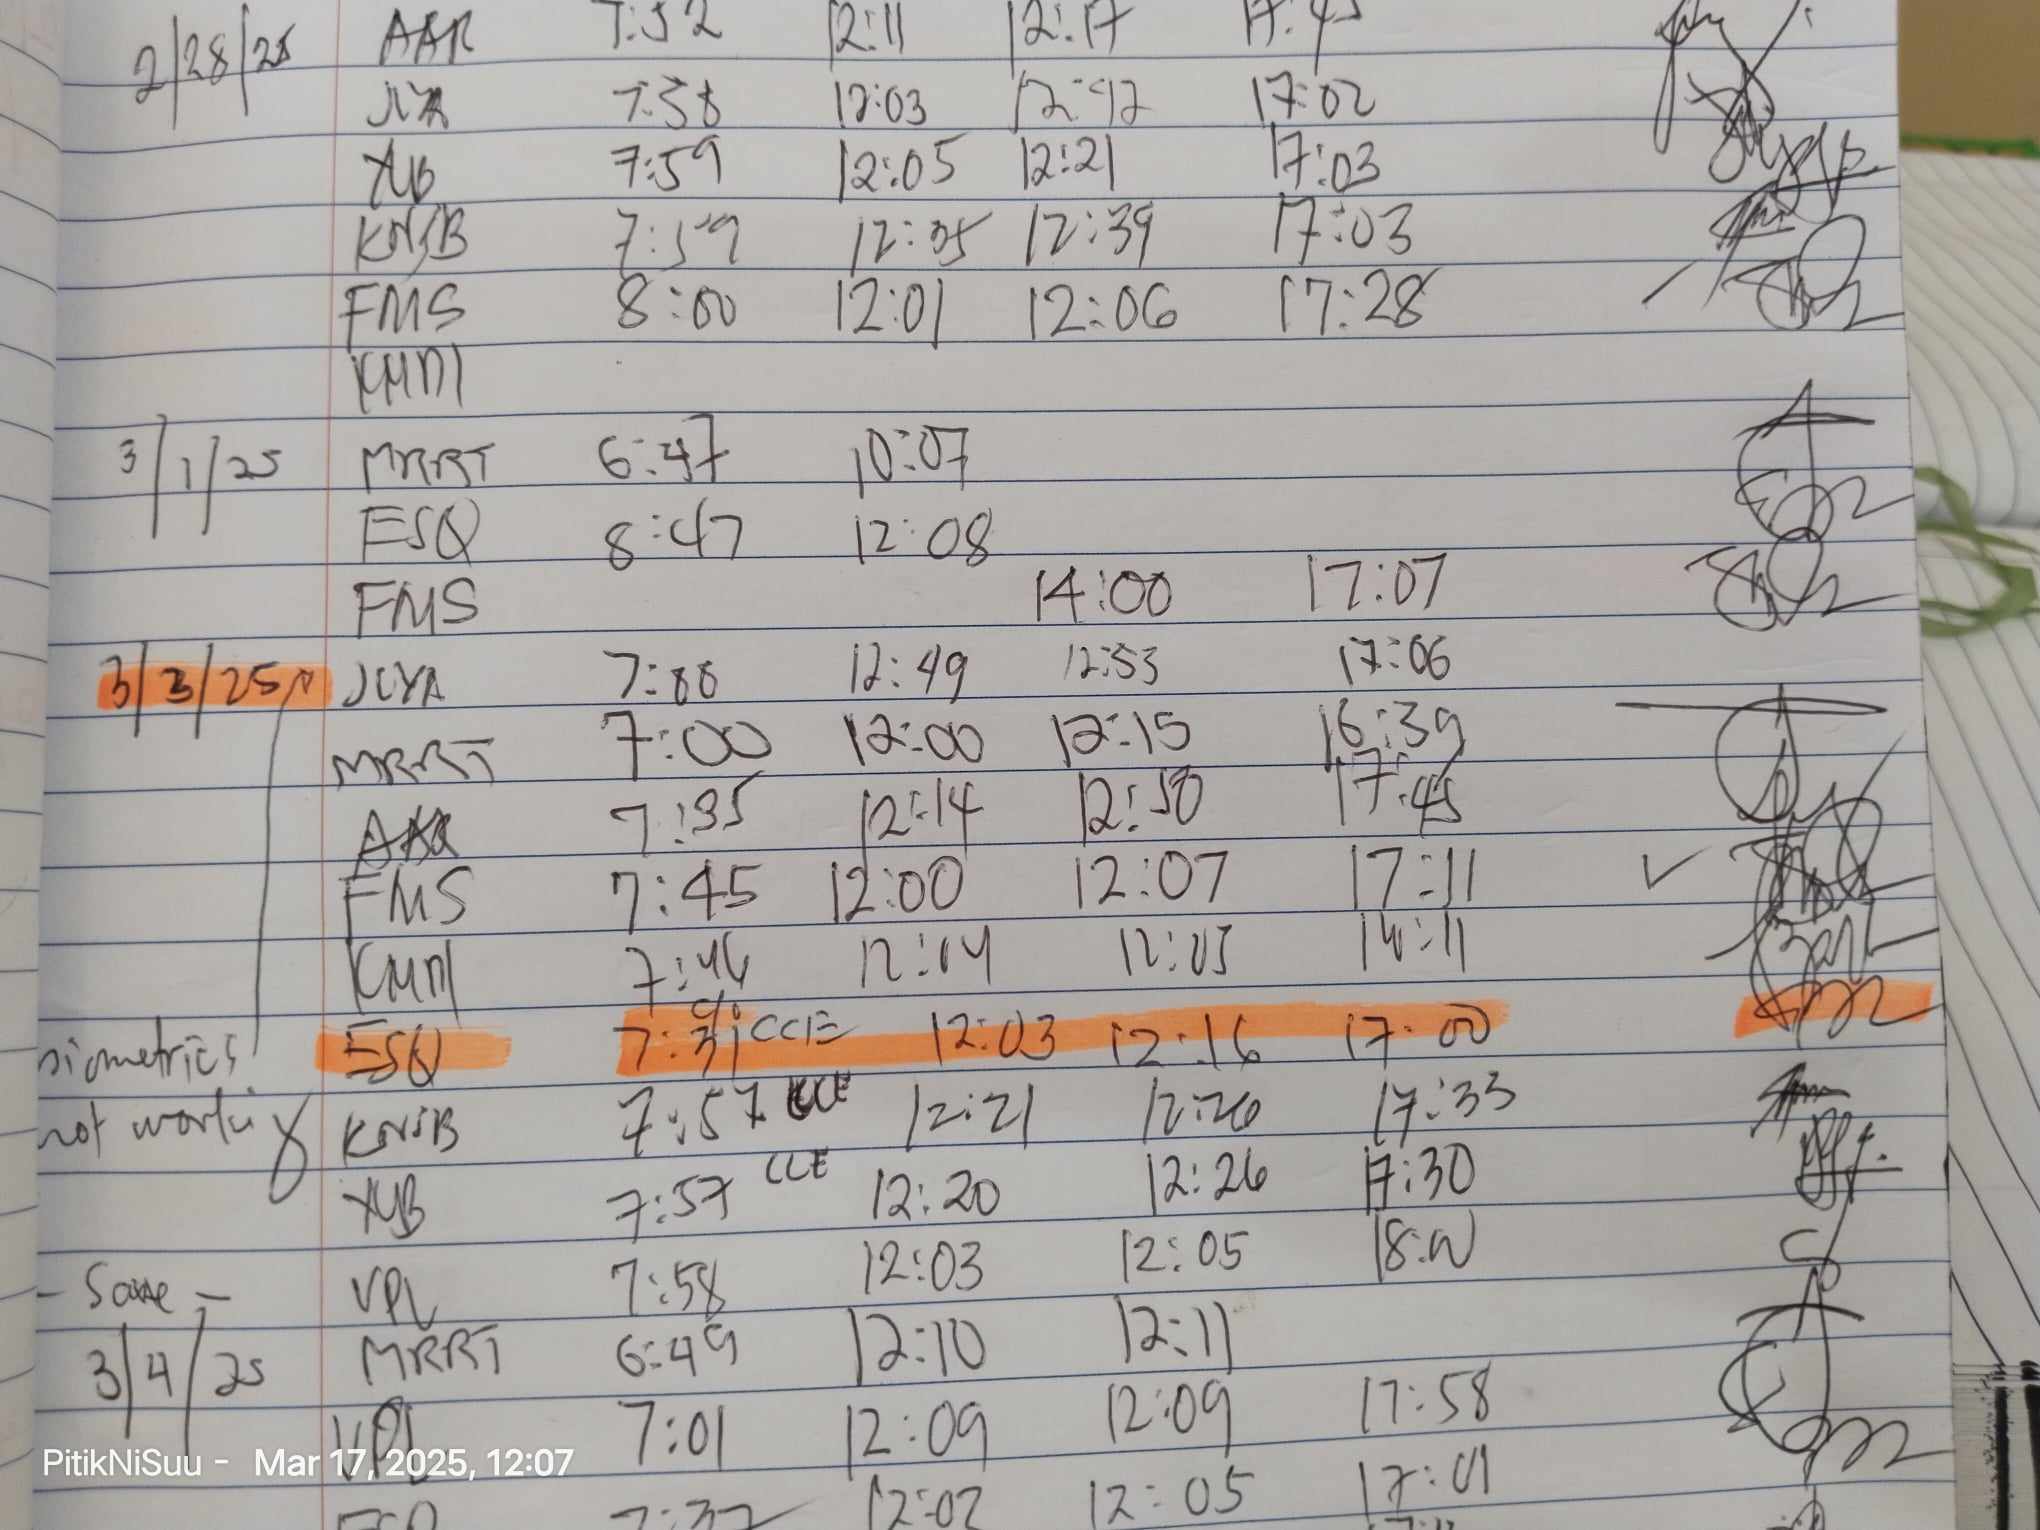 2/28/25 AAR 7:52 12:11 12:17
7:58 12:03 12:42 17:02
7:59 12:05 12:21 17:03
KNSB 7:59 12:35 12:39 17:03
FMS 8:00 12:01 12:06 17:28
KMM
3/1/25 MRRT 6:47 10:07
ESQ 8:47 12:08
FMS 14:00 17:07
3/3/25 JLYA 12:49 12:53 17:06
MRRT 7:00 12:00 12:15 16:39
AAR 7:35 12:14 17:45
FMS 7:45 12:00 12:07 17:11
KMM 7:46 12:04 12:05
ESQ 7:31 CCE 12:03 12:16 17:00
biometrics
KNSB 7:57 CCE 12:21 12:26 17:33
not working
XUB 7:57 CCE 12:20 12:26 17:30
- Same - VPL 7:58 12:03 12:05 18:00
3/4/25 MRRT 6:49 12:10 12:11
VPL 7:01 12:09 12:09 17:58
ESQ 7:37 12:02 12:05 17:01
PitikNiSuu - Mar 17, 2025, 12:07